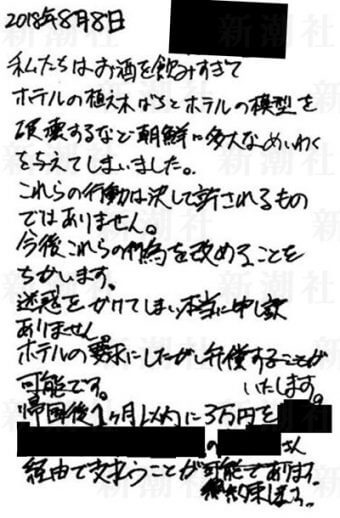 2018年8月8日
私たちはお酒を飲みすぎて
ホテルの植え木ばちとホテルの模型を
破壊するなど朝鮮に多大なめいわく
を与えてしまいました。
これらの行動は決して許されるもの
ではありません。
今後これらの行為を改めることを
ちかいます。
迷惑をかけてしまい本当に申し訳
ありません
ホテルの要求にしたがい弁償することが
可能です。 いたします。
帰国後1ヶ月以内に3万円を
の さん
経由で支払うことが可能であります。
約束します。
新潮社